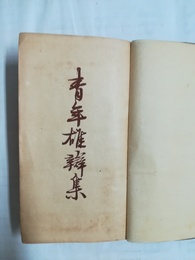 青年雄辯集